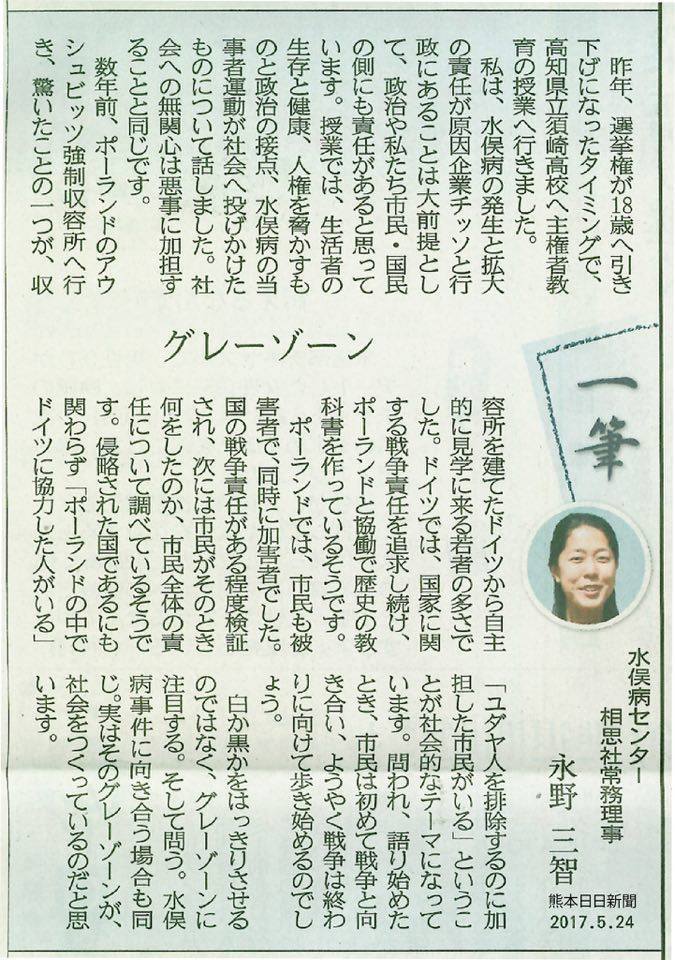 一筆
グレーゾーン
水俣病センター
相思社常務理事
永野 三智
昨年、選挙権が18歳へ引き
下げになったタイミングで、
高知県立須崎高校へ主権者教
育の授業へ行きました。
私は、水俣病の発生と拡大
の責任が原因企業チッソと行
政にあることは大前提とし
て、政治や私たち市民・国民
の側にも責任があると思って
います。授業では、生活者の
生存と健康、人権を脅かすも
のと政治の接点、水俣病の当
事者運動が社会へ投げかけた
ものについて話しました。社
会への無関心は悪事に加担す
ることと同じです。
数年前、ポーランドのアウ
シュビッツ強制収容所へ行
き、驚いたことの一つが、収
容所を建てたドイツから自主
的に見学に来る若者の多さで
した。ドイツでは、国家に関
する戦争責任を追求し続け、
ポーランドと協働で歴史の教
科書を作っているそうです。
ポーランドでは、市民も被
害者で、同時に加害者でした。
国の戦争責任がある程度検証
され、次には市民がそのとき
何をしたのか、市民全体の責
任について調べているそうで
す。侵略された国であるにも
関わらず「ポーランドの中で
ドイツに協力した人がいる」
「ユダヤ人を排除するのに加
担した市民がいる」というこ
とが社会的なテーマになって
います。問われ、語り始めた
とき、市民は初めて戦争と向
き合い、ようやく戦争は終わ
りに向けて歩き始めるのでし
ょう。
白か黒かをはっきりさせる
のではなく、グレーゾーンに
注目する。そして問う。水俣
病事件に向き合う場合も同
じ。実はそのグレーゾーンが、
社会をつくっているのだと思
います。
熊本日日新聞
2017.5.24